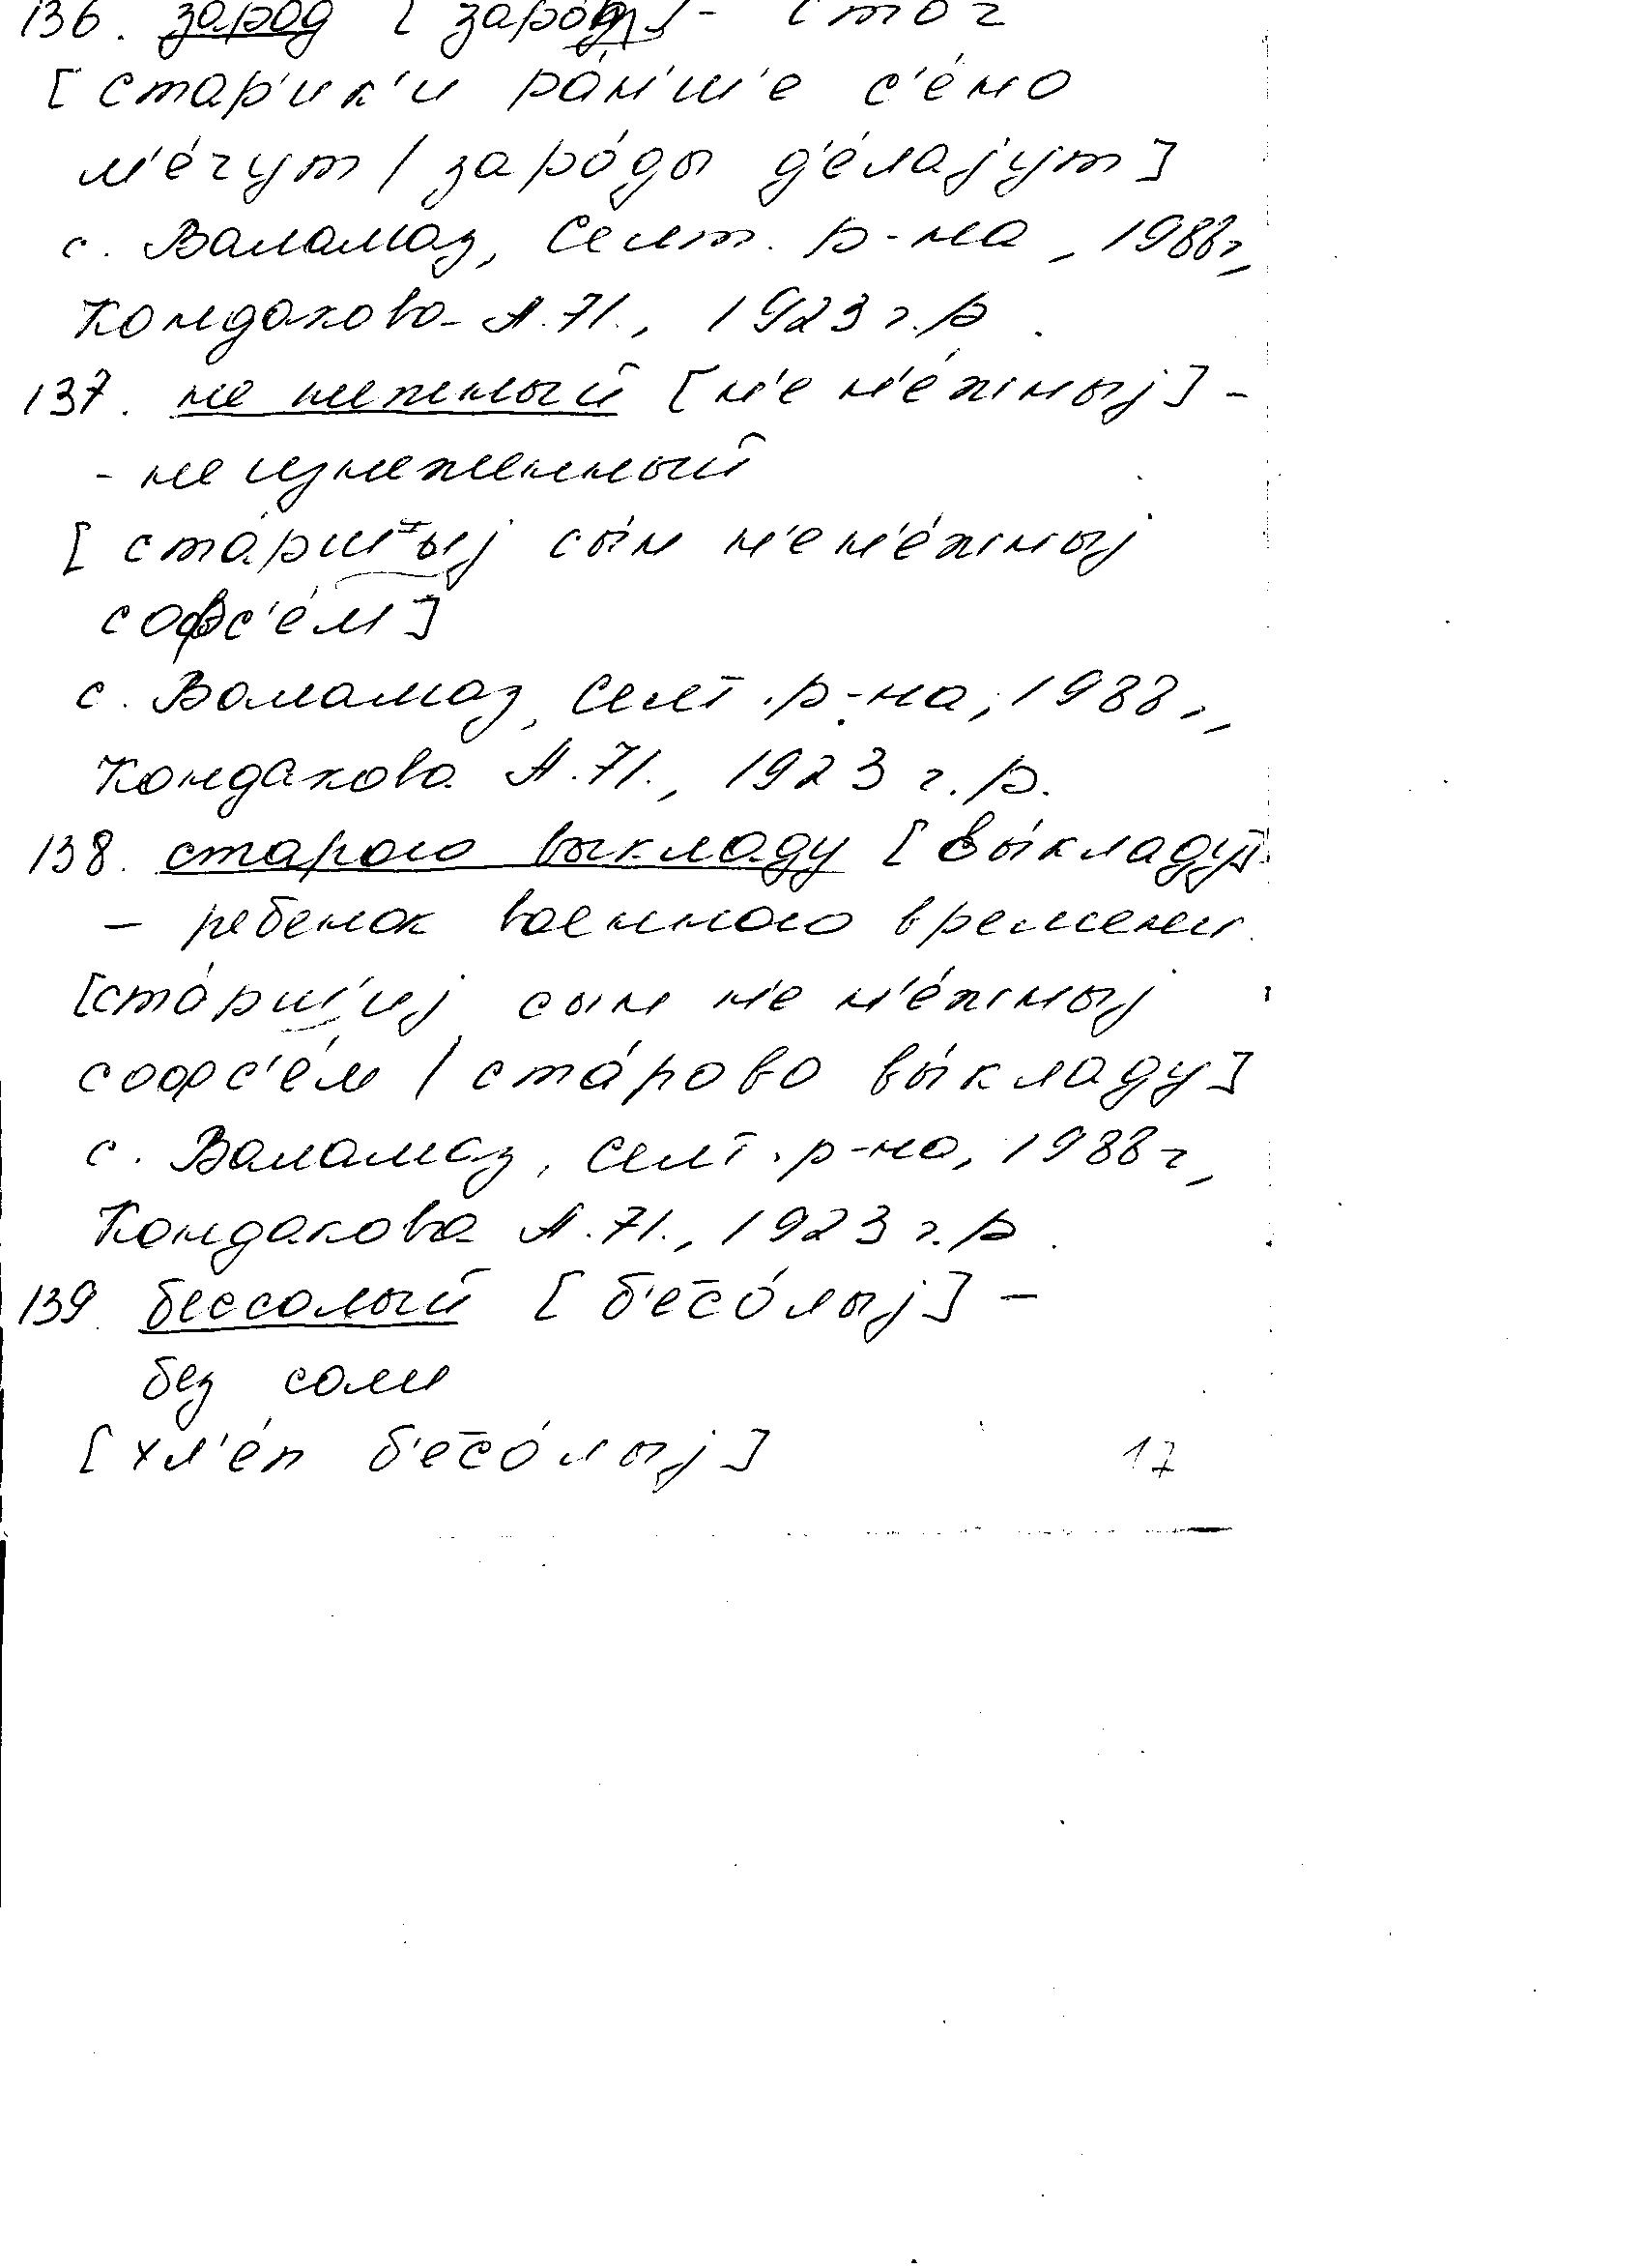 136. зарод [заро́д] - стог
[стар'ик'и ра́н'ш'е с'е́но
м'е́чут / заро́ды д'е́лаjут]
с. Валамаз, Селт. р-на, 1988г.,
Кондакова А.Л., 1923 г.р.
137. не нежный [н'е н'е́жныj] -
- не изнеженный
[ста́ршыj сы́н н'е н'е́жныj
софс'е́м]
с. Валамаз, Селт. р-на, 1988г.,
Кондакова А.Л., 1923 г.р.
138. старого выкладу [вы́кладу]
– ребенок военного времени.
[ста́рш'иj сын н'е н'е́жныj
софс'е́м / ста́рово вы́кладу]
с. Валамаз, Селт. р-на, 1988г.,
Кондакова А.Л., 1923 г.р.
139. бессолый [б'ес̄о́лыj] –
без соли
[хл'е́п б'ес̄о́лыj]
17